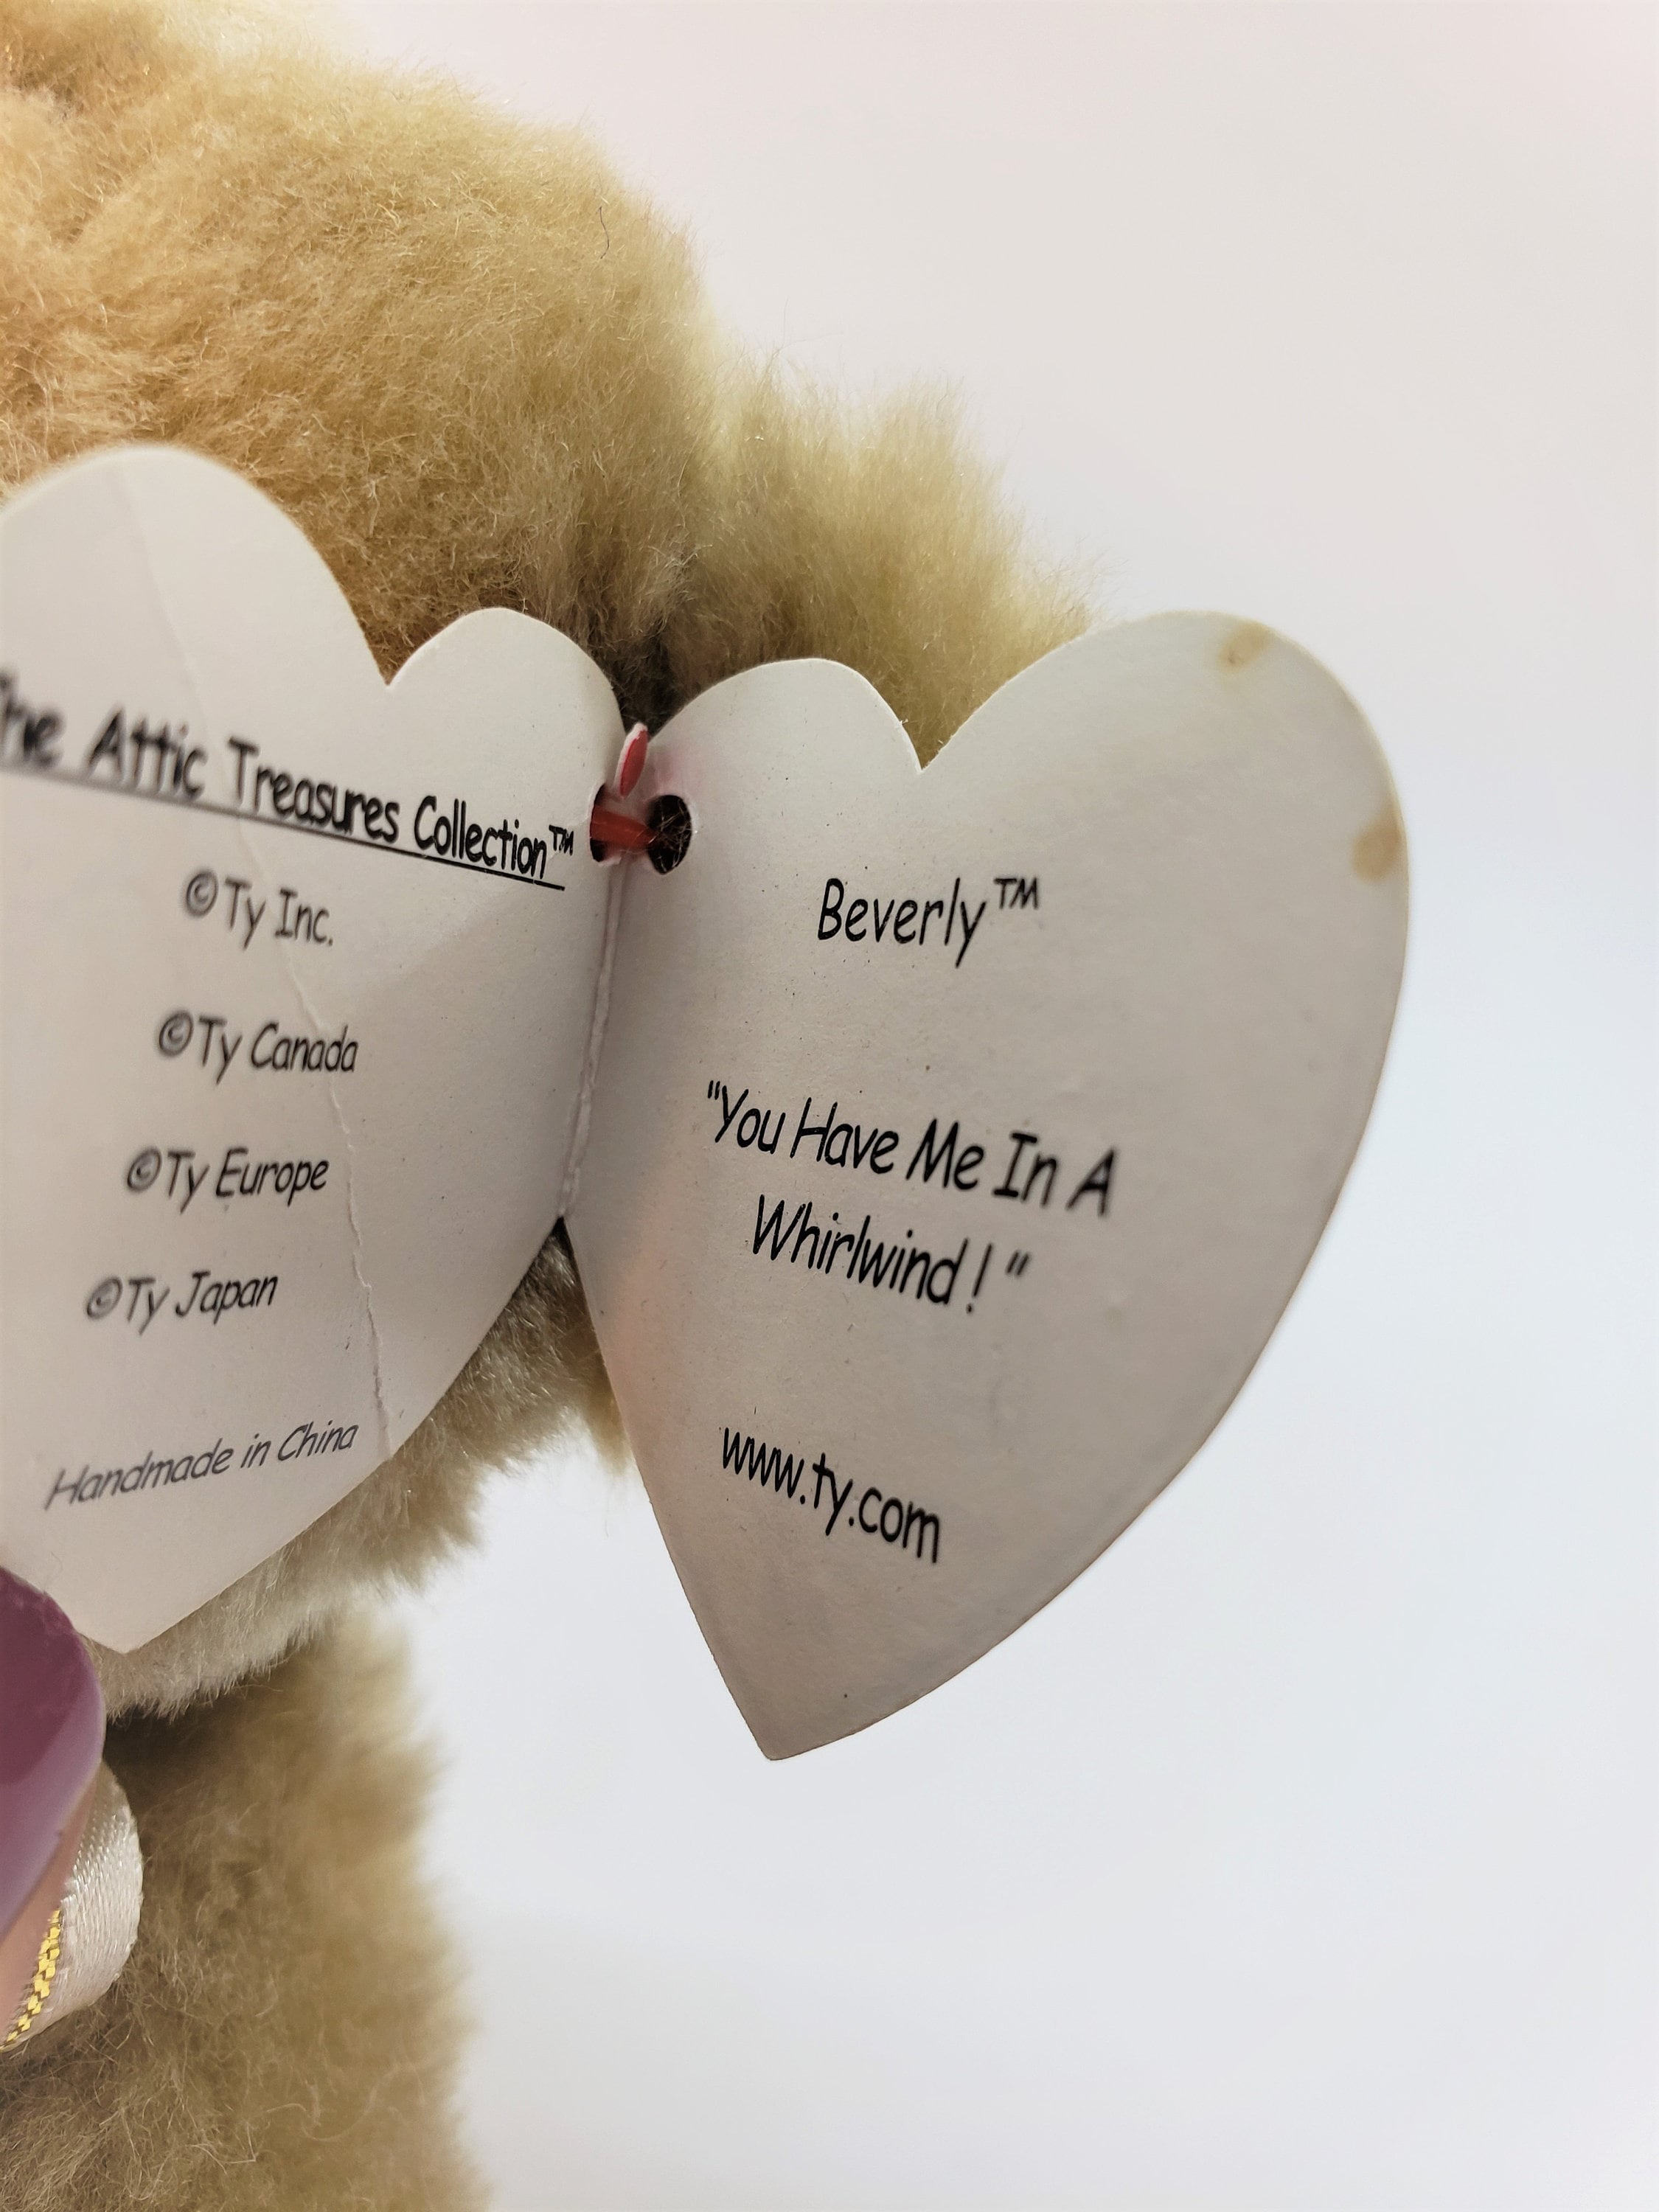 The Attic Treasures Collection™
©Ty Inc.
©Ty Canada
©Ty Europe
©Ty Japan
Handmade in China
Beverly™
"You Have Me In A
Whirlwind ! "
www.ty.com